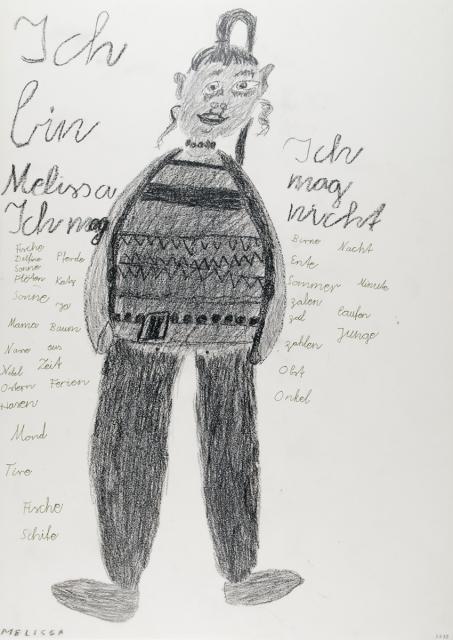 Ich
bin
Melissa
Ich mag
Fische
Delfine Pferde
Sonne
Katz
Sonne
Mama Baum
aus
Zeit
Ostern Ferien
Hasen
Mond
Tire
Fische
Schife
Ich
mag
nicht
Birne Nacht
Ente
Sommer Minute
zalen
laufen
Junge
zahlen
Obst
Onkel
MELISSA